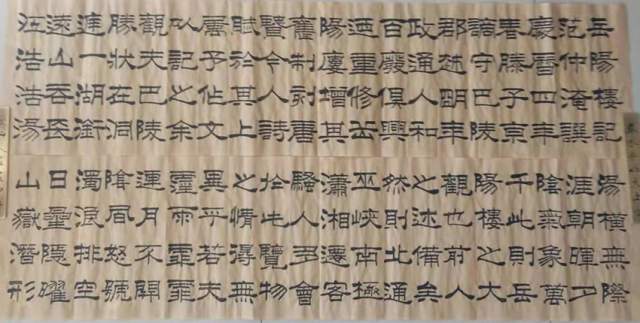 岳陽樓記
范仲淹譔
慶曆四年
春滕子京
謫守巴陵
郡越明年
政通人和
百廢俱興
迺重修岳
陽樓增其
舊制刻唐
賢今人詩
賦於其上
屬予作文
以記之余
觀夫巴陵
勝狀在洞
庭一湖銜
遠山吞長
江浩浩湯
湯橫無際
涯朝暉夕
陰氣象萬
千此則岳
陽樓之大
觀也前人
之述備矣
然則北通
巫峽南極
瀟湘遷客
騷人多會
於此覽物
之情得無
異乎若夫
霪雨霏霏
連月不開
陰風怒號
濁浪排空
日星隱曜
山嶽潛形